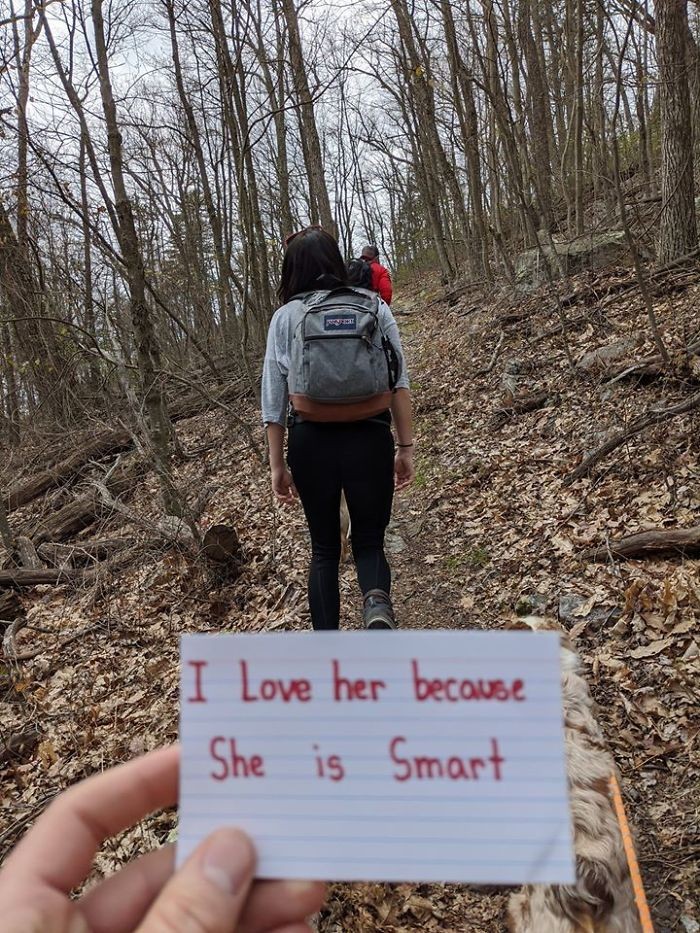 JANSPORT
I Love her because
She is Smart